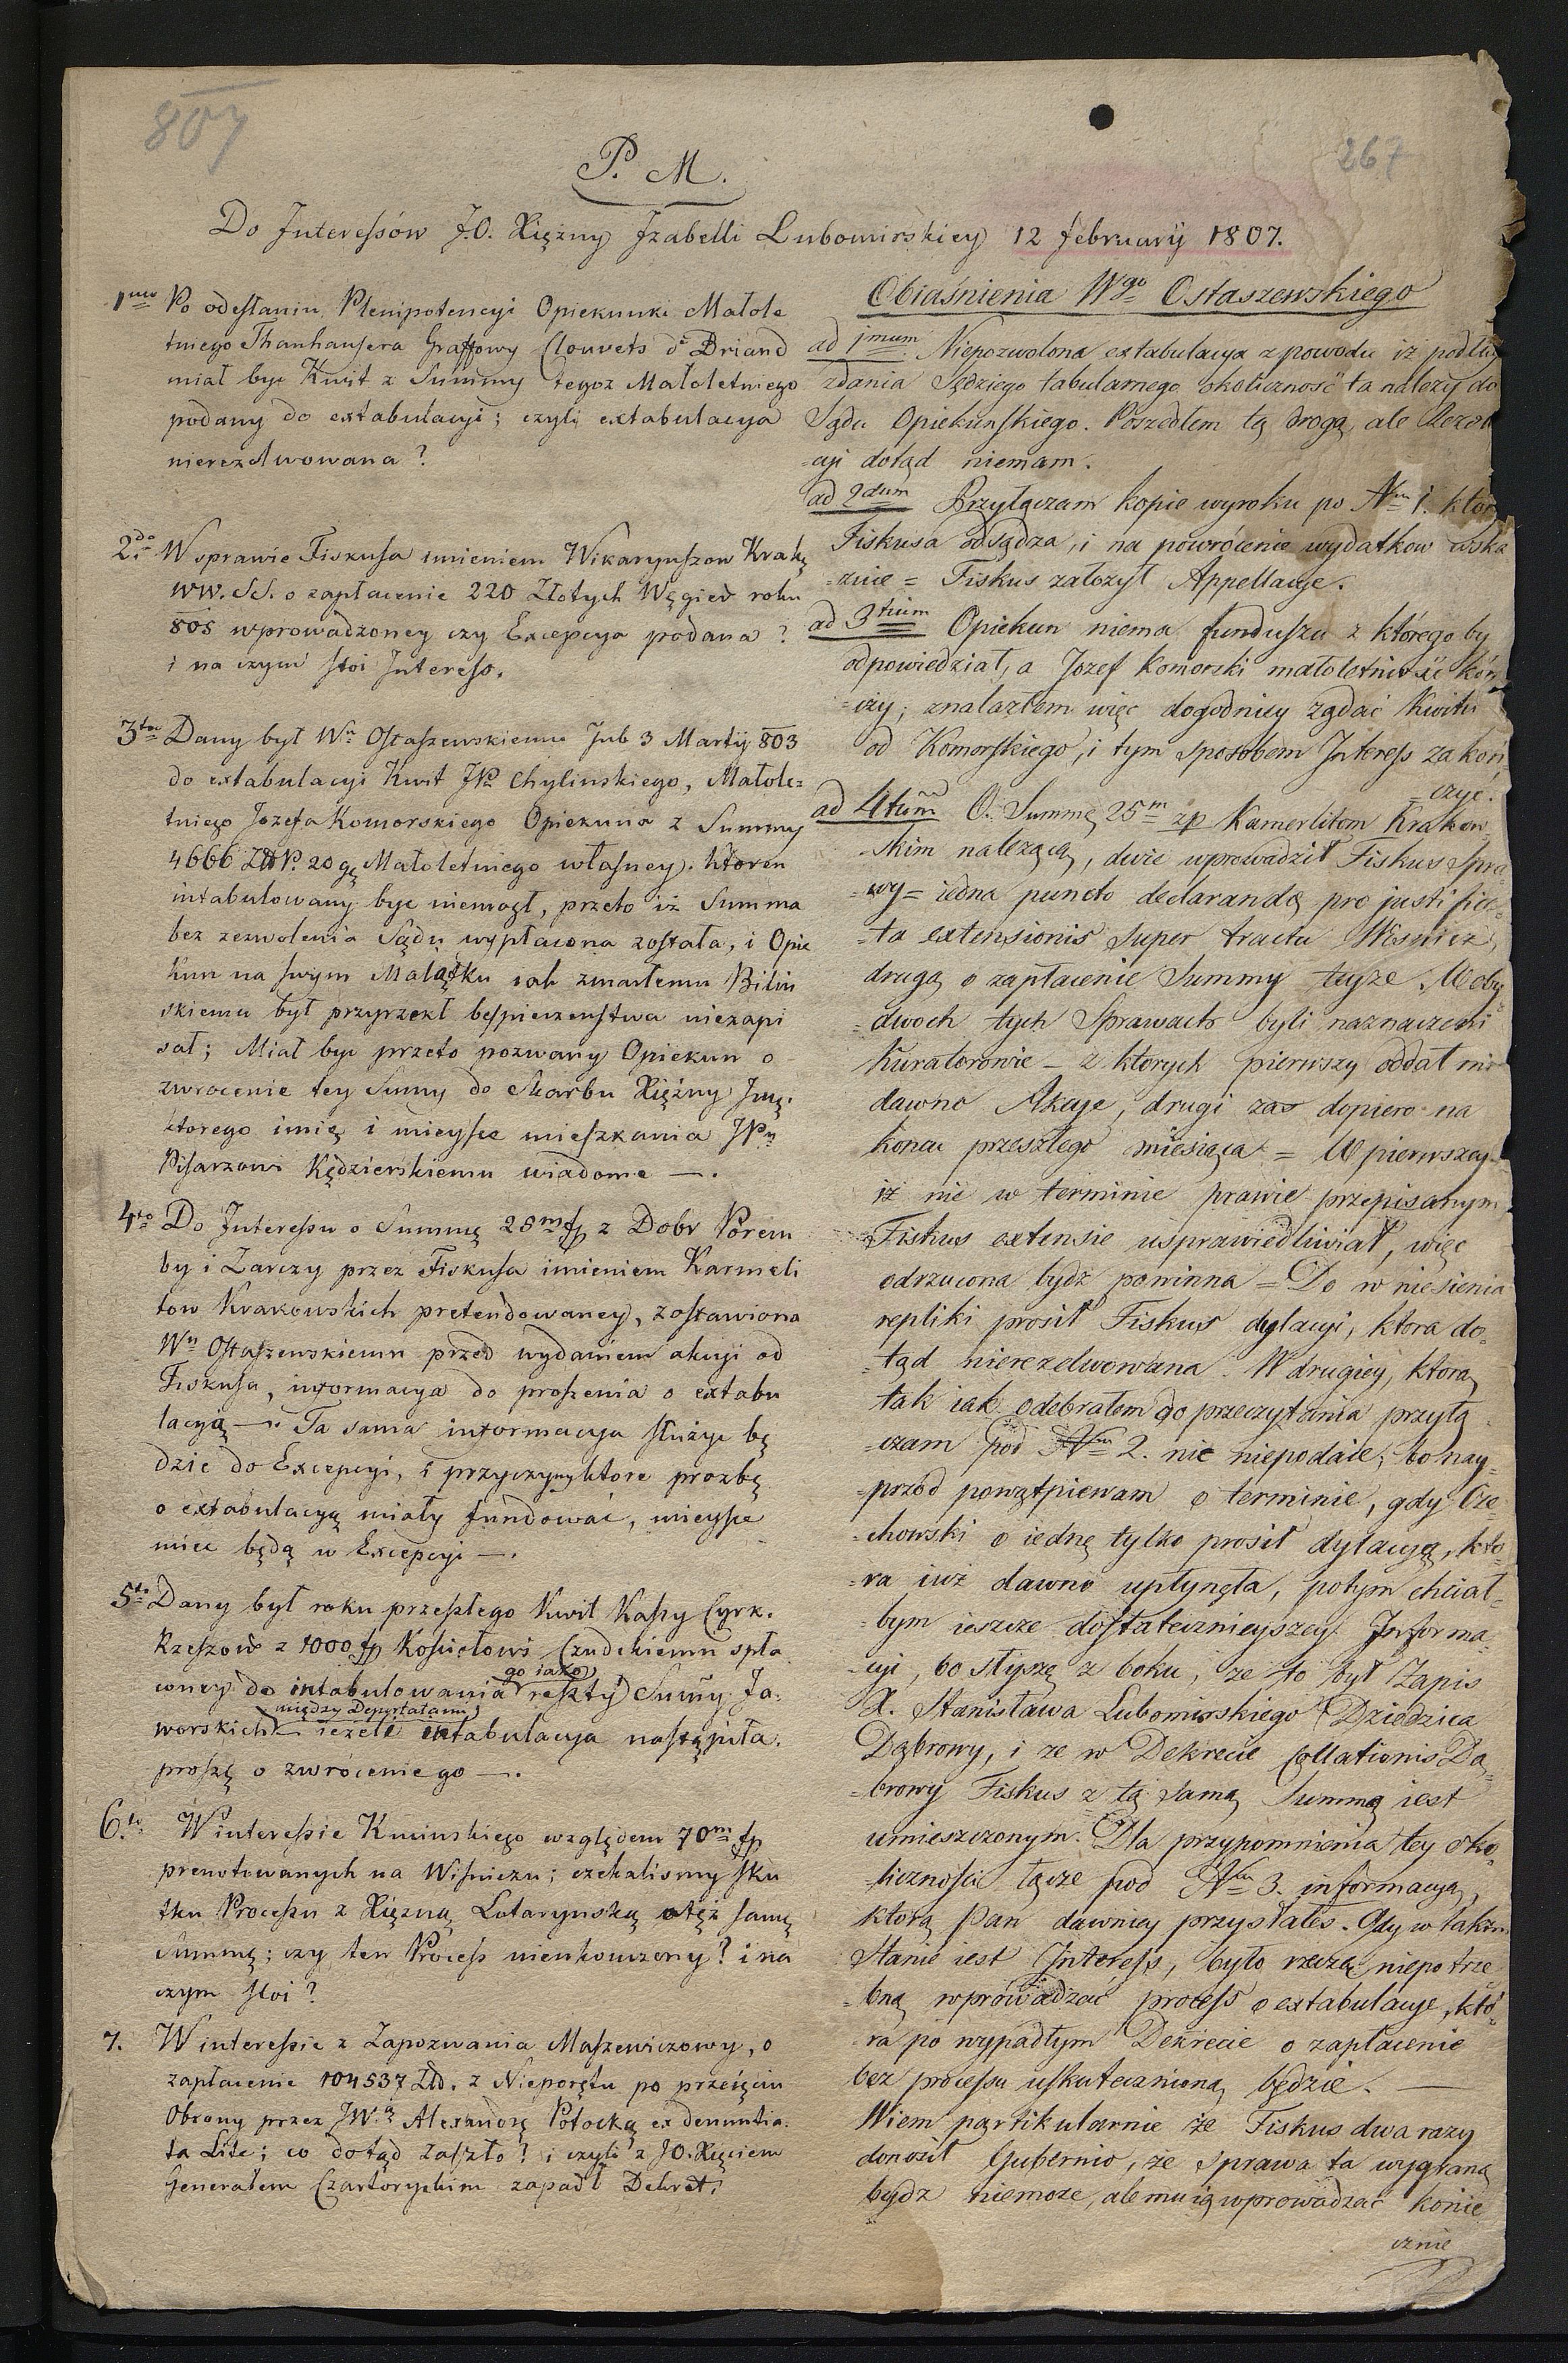 807
267
P. M.
Do Interessów J.O. Xiężny Izabelli Lubomirskiey 12 february 1807.
1mo Po odesłaniu Plenipotencyi Opiekunki Małole
tniego Thanhausera Graffowy Clouvets d'Briand
miał byc Kwit z Summy tegoz Małoletniego
podany do extabulacyi; czyli extabulacya
nierezolwowana?
2do W sprawie Fiskusa imieniem Wikaryuszow Krakę
WW. SS. o zapłacenie 220 Złotych Węgier roku
805 wprowadzoney czy Excepcya podana?
i na czym stoi Interess.
3tio Dany był Wu Ostaszewskiemu sub 3 Martij 803
do extabulacyi Kwit JP. Chylinskiego, Małole=
tniego Jozefa Komorskiego Opiekuna z Summy
4666 ZłP. 20 gę Małoletniego własney. Ktoren
intabulowany byc niemogł, przeto iż Summa
bez zezwolenia Sądu wypłacona została, i Opie
kun na swym Maiątku iak zmarłemu Bilin
skiemu był przyrzekł bespieczenstwa niezapi
sał; Miał byc przeto pozwany Opiekun o
zwrocenie tey Summy do Skarbu Xiężny Jmę.
ktorego imię i mieysce mieszkania JPu
Pisarzowi Kędzierskiemu wiadome —.
4to Do Interessu o Summę 25m fp z Dobr Porem
by i Zarczy przez Fiskusa imieniem Karmeli
tow Krakowskich pretendowaney, zostawiona
Wu Ostaszewskiemu przed wydaniem akcyi od
Fiskusa, informacya do proszenia o extabu
lacyą —. Ta sama informacya służyc bę
dzie do Excepcyi, i przyczyny ktore prozbę
o extabulacyą miały fundować, mieysce
miec będą w Excepcyi —.
5to Dany był roku przeszłego Kwit Kassy Cyrk.
Rzeszow z 1000 fp Kościołowi Czudeckiemu spła
coney do intabulowania go iako reszty Summy Ja-
worskich między Deportatami ieżeli extabulacya nastąpiła.
proszę o zwrócenie go —.
6to W interessie Kucinskiego względem 70m fp
prenotowanych na Wiśniczu; czekalismy sku
tku Processu z Xiężną Lotarynską otęż samę
Summę; czy ten Process nieukonczony? i na
czym stoi?
7. W interessie z Zapozwania Maszewiczowy, o
zapłacenie 104537 Złd. z Nieporętu po przeięciu
Obrony przez JW. Alexandrę Potocką ex denuntia-
ta Lite; co dotąd zaszło? i czyli z JO. Xięciem
Generałem Czartoryskim zapadł Dekret.
Obiaśnienia Wgo Ostaszewskiego
ad 1mum. Niepozwolona extabulacya z powodu iż podłu
zdania Sędziego tabularnego okoliczność ta należy do
Sądu Opiekunskiego. Poszedłem tą drogą, ale Rezol
=cyi dotąd niemam.
ad 2dum Przyłączam kopie wyroku po Nm 1. któr
Fiskusa odsądza, i na powrócenie wydatkow wska
=zuie = Fiskus założył Appellacye.
ad 3tium Opiekun niema funduszu z którego by
odpowiedział, a Jozef Komorski małoletniość koń
=czy; znalazłem więc dogodniey żądać Kwitu
od Komorskiego, i tym sposobem Interess zakoń
=czyc.
ad 4tum O. Summę 25m zp Kamerlitom Krakow
=skim należącą, dwie wprowadził Fiskus Spra
=wy = iedna puncto declaranda pro justifica
=ta extensionis super tractu Wisnicz,
drugą o zapłacenie Summy teyże. W oby
=dwoch tych Sprawach byli naznaczeni
Kuratorowie – z ktorych pierwszy oddał nie
dawno Akcye, drugi zas dopiero na
koncu przeszłego miesiąca = W pierwszey
iż nie w terminie prawie przepisanym
Fiskus extensie usprawiedliwiał, więc
odrzucona bydź powinna = Do wniesienia
repliki prosił Fiskus dylacyi, ktora do=
=tąd nierezolwowana. W drugiey, ktorą
tak iak odebrałem do przeczytania przyłą
=czam pod Nm 2. nic niepodaię; bo nay=
=przód powątpiewam o terminie, gdy Cze
=chowski o iednę tylko prosił dylacyą, kto=
=ra iuż dawno upłynęła, potym chciał=
=bym ieszcze dostatecznieyszey Informa=
=cyi, bo słyszę z boku, że to był Zapis
X. Stanisława Lubomirskiego Dziedzica
Dąbrowy, i że w Dekrecie Collationis Dą=
=browy Fiskus z tą samą Summą iest
umieszczonym. Dla przypomnienia tey oko=
=liczności łączę pod Nm 3. informacyą,
ktorą Pan dawniey przysłałeś. Gdy w takim
Stanie iest Interess, było rzeczą niepotrze
=bną wprowadzać process o extabulacye, któ=
ra po wypadłym Dekrecie o zapłacenie
bez processu uskuteczniona będzie. —
Wiem partikularnie że Fiskus dwa razy
donosił Gubernio, że sprawa ta wygraną
bydz niemoże, ale mu ią wprowadzać konie
cznie